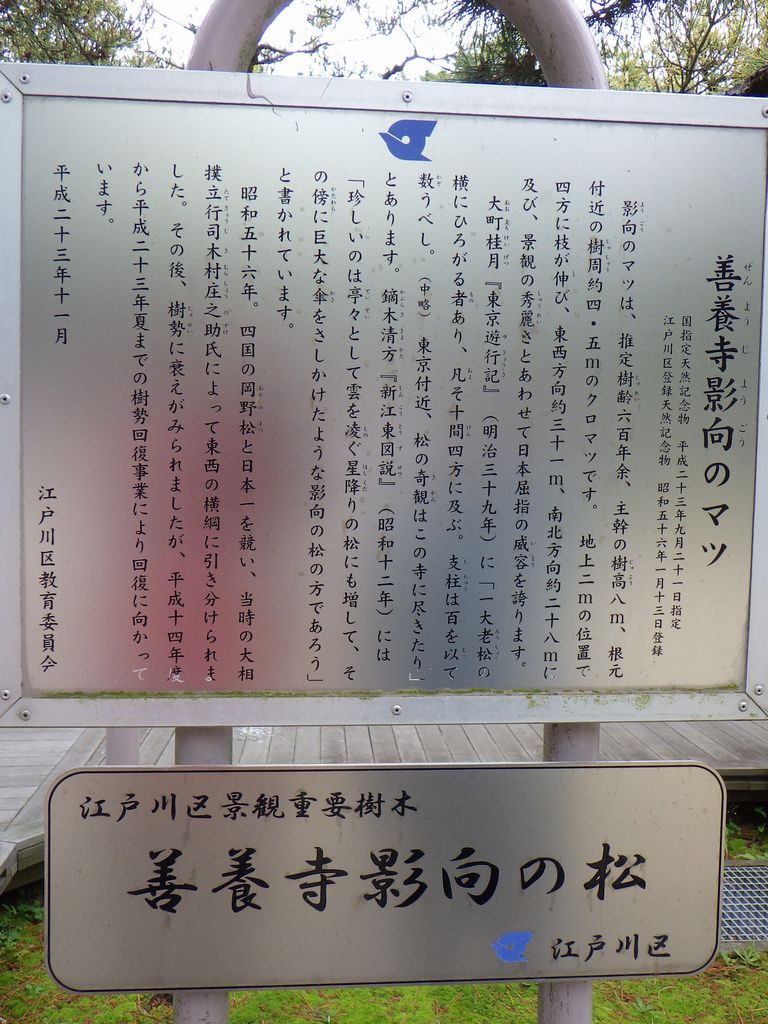 善養寺影向のマツ
国指定天然記念物 平成二十三年九月二十一日指定
江戸川区登録天然記念物 昭和五十六年一月十三日登録
影向のマツは、推定樹齢六百年余、主幹の樹高八m、根元
付近の樹周約四・五mのクロマツです。 地上二mの位置で
四方に枝が伸び、東西方向約三十一m、南北方向約二十八mに
及び、景観の秀麗さとあわせて日本屈指の威容を誇ります。
大町桂月『東京遊行記』(明治三十九年)に「一大老松の
横にひろがる者あり、凡そ十間四方に及ぶ。支柱は百を以て
数うべし。(中略)東京付近、松の奇観はこの寺に尽きたり」
とあります。鏑木清方『新江東図説』(昭和十二年)には
「珍しいのは亭々として雲を凌ぐ星降りの松にも増して、そ
の傍に巨大な傘をさしかけたような影向の松の方であろう」
と書かれています。
昭和五十六年。四国の岡野松と日本一を競い、当時の大相
撲立行司木村庄之助氏によって東西の横綱に引き分けられま
した。その後、樹勢に衰えがみられましたが、平成十四年度
から平成二十三年夏までの樹勢回復事業により回復に向かって
います。
平成二十三年十一月
江戸川区教育委員会
江戸川区景観重要樹木
善養寺影向の松
江戸川区